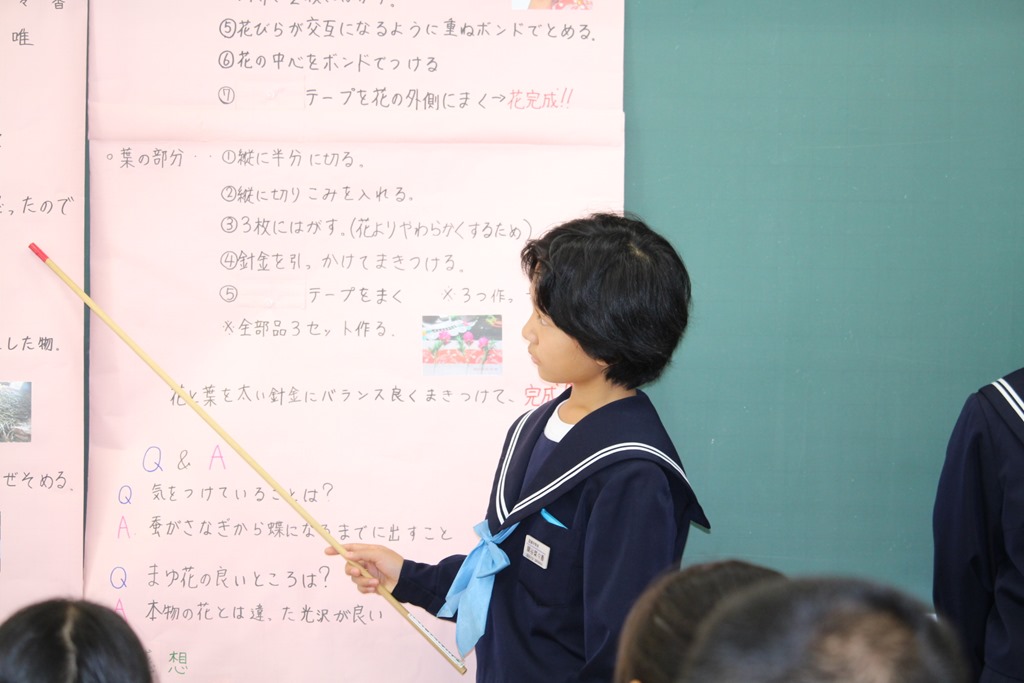 唯
ったので
した物。
ぜそめる。
⑤花びらが交互になるように重ねボンドでとめる。
⑥花の中心をボンドでつける
⑦ テープを花の外側にまく→花完成!!
○葉の部分‥①縦に半分に切る。
②縦に切りこみを入れる。
③3枚にはがす。(花よりやわらかくするため)
④針金を引っかけてまきつける。
⑤ テープをまく ※3つ作
※全部品3セット作る。
花と葉を太い針金にバランス良くまきつけて、完成
Q & A
Q 気をつけていることは?
A. 蚕がさなぎから蝶になるまでに出すこと
Q まゆ花の良いところは?
A 本物の花とは違った光沢が良い
想